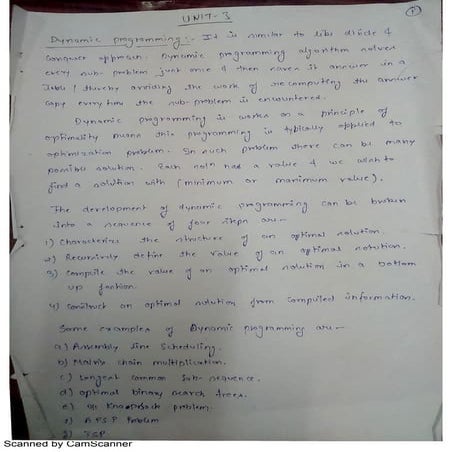 UNIT-3
1
Dynamic programming :- It is similar to like divide &
Conquer approach. Dynamic programming algorithm solves
every sub-problem just once & then saves it answer in a
table, thereby avoiding the work of recomputing the answer
every time the sub-problem is encountered.
Dynamic programming is works on a principle of
optimality means this programming is typically applied to
optimization problem. In such problem there can be many
possible solution. Each soln has a value & we wish to
find a solution with (minimum or maximum value).
The development of dynamic programming can be broken
into a sequence of four steps are-
1) Characterize the structure of an optimal solution.
2) Recursively define the value of an optimal solution.
3) Compile the value of an optimal solution in a bottom
up fashion.
4) Construct an optimal solution from compiled information.
Some examples of Dynamic programming are-
a) Assembly line Scheduling.
b) Matrix chain multiplication.
c) Longest common Sub-sequence.
d) optimal binary search trees.
e) Knapsack problem.
f) A.P.S.P Problem
g) TSP
Scanned by CamScanner